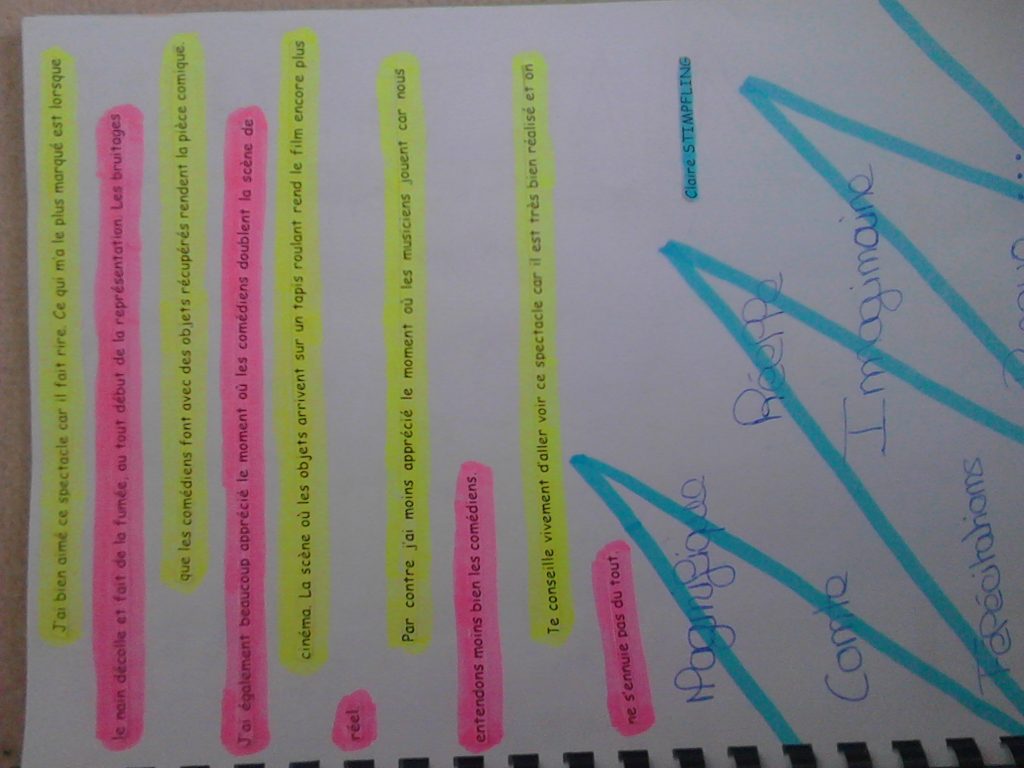 J'ai bien aimé ce spectacle car il fait rire. Ce qui m'a le plus marqué est lorsque
le nain décolle et fait de la fumée, au tout début de la représentation. Les bruitages
que les comédiens font avec des objets récupérés rendent la pièce comique.
J'ai également beaucoup apprécié le moment où les comédiens doublent la scène de
cinéma. La scène où les objets arrivent sur un tapis roulant rend le film encore plus
réel.
Par contre j'ai moins apprécié le moment où les musiciens jouent car nous
entendons moins bien les comédiens.
Je conseille vivement d'aller voir ce spectacle car il est très bien réalisé et on
ne s'ennuie pas du tout.
Claire STIMPFLING
Magnifique
Réelle
Conte
Imaginaire
Félicitations
...